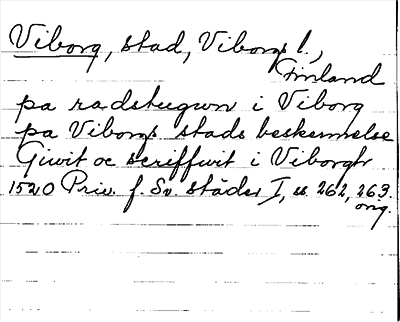 Viborg, stad, Viborgs l.,
Finland
pa radstugwn i Viborg
pa Viborgs stads beskermelse
Giwit oc scriffwit i Viborgh
1520 Priv. f. Sv. städer I, s. 262, 263.
orig.